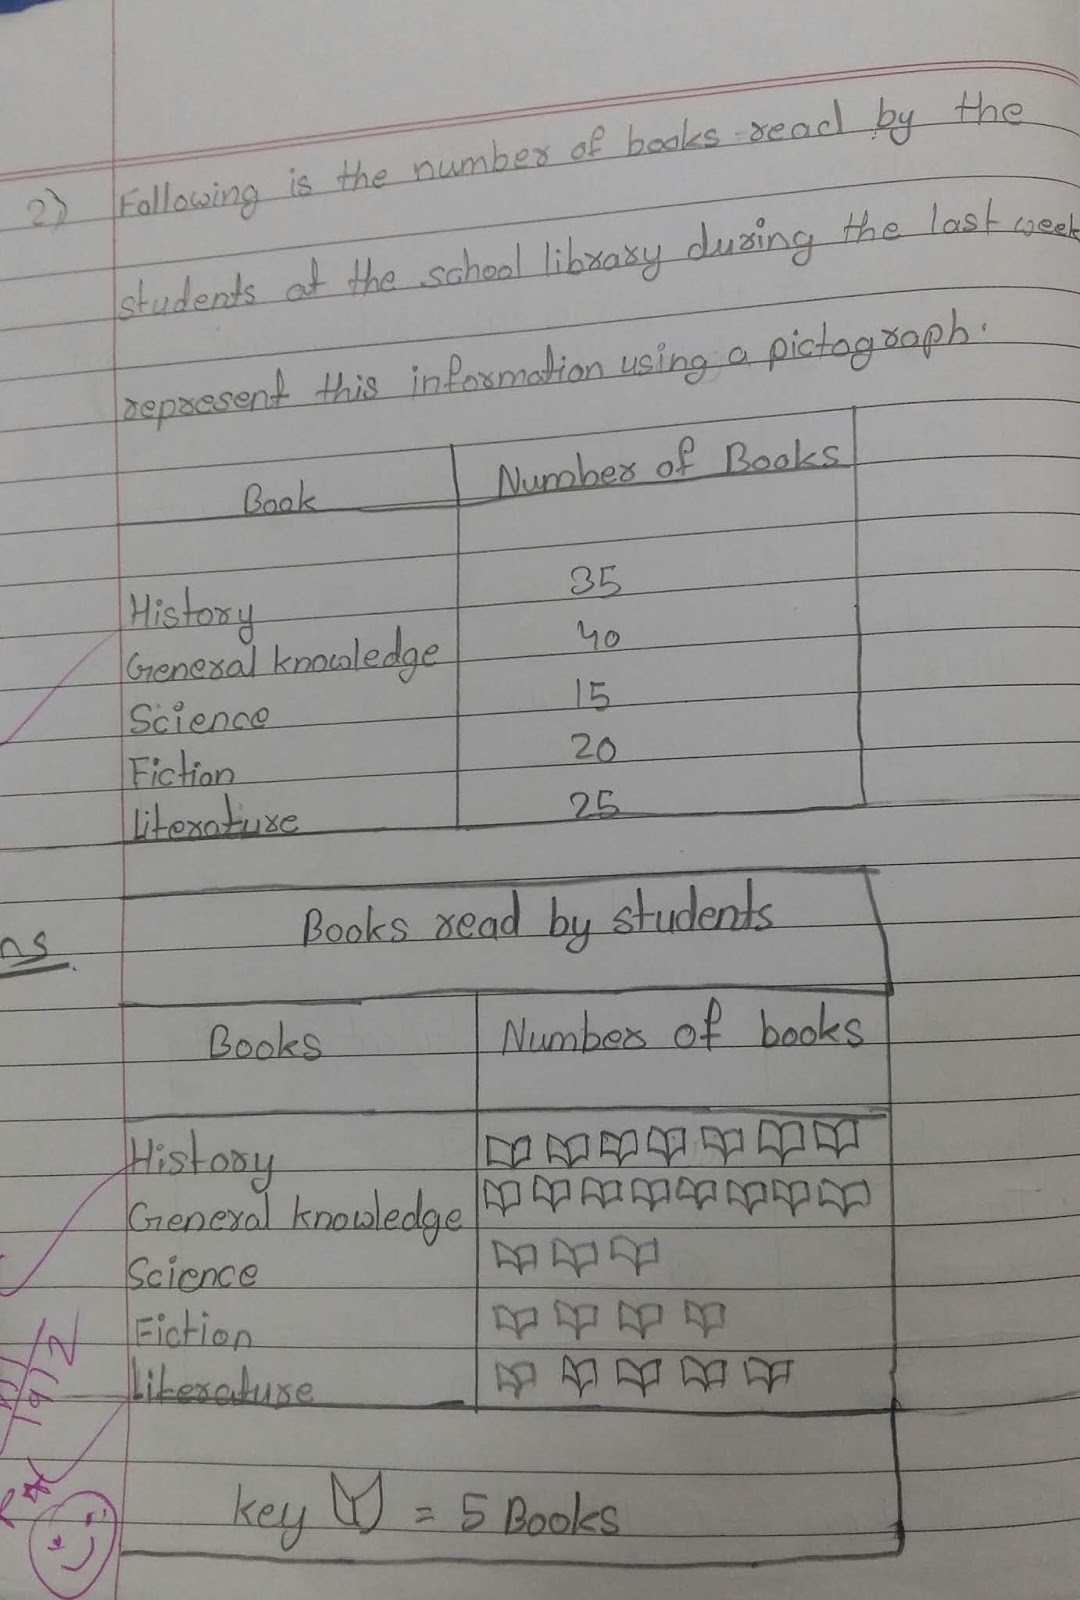 2) Following is the number of books read by the
students at the school library during the last week
represent this information using a pictograph.
Book Number of Books
History 35
General knowledge 40
Science 15
Fiction 20
Literature 25
ns
Books read by students
Books Number of books
History
General knowledge
Science
Fiction
Literature
key = 5 Books